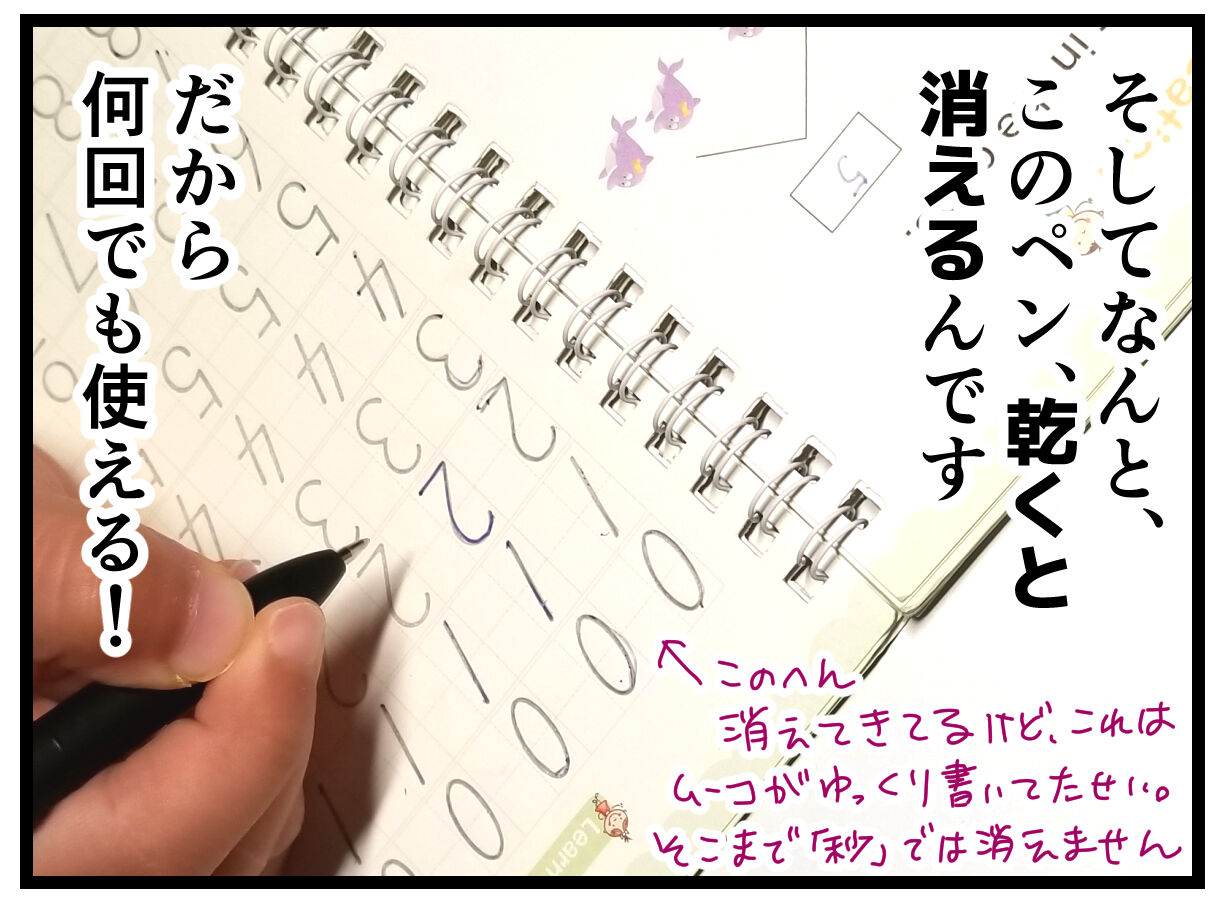 そしてなんと、
このペン、乾くと
消えるんです
だから
何回でも使える！
このへん
消えてきてるけど、これは
ムーコがゆっくり書いてたせい。
そこまで「秒」では消えません
5
5 4 3 2 1 0
5 4 3 2 1 0
5 4 3 2 1 0
Learn